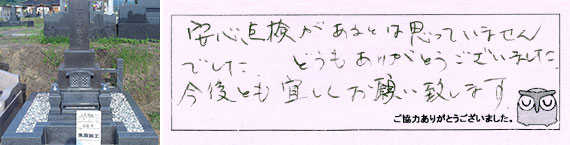 安心点検があるとは思っていません
でした　どうもありがとうございました
今後とも宜しくお願い致します
ご協力ありがとうございました。